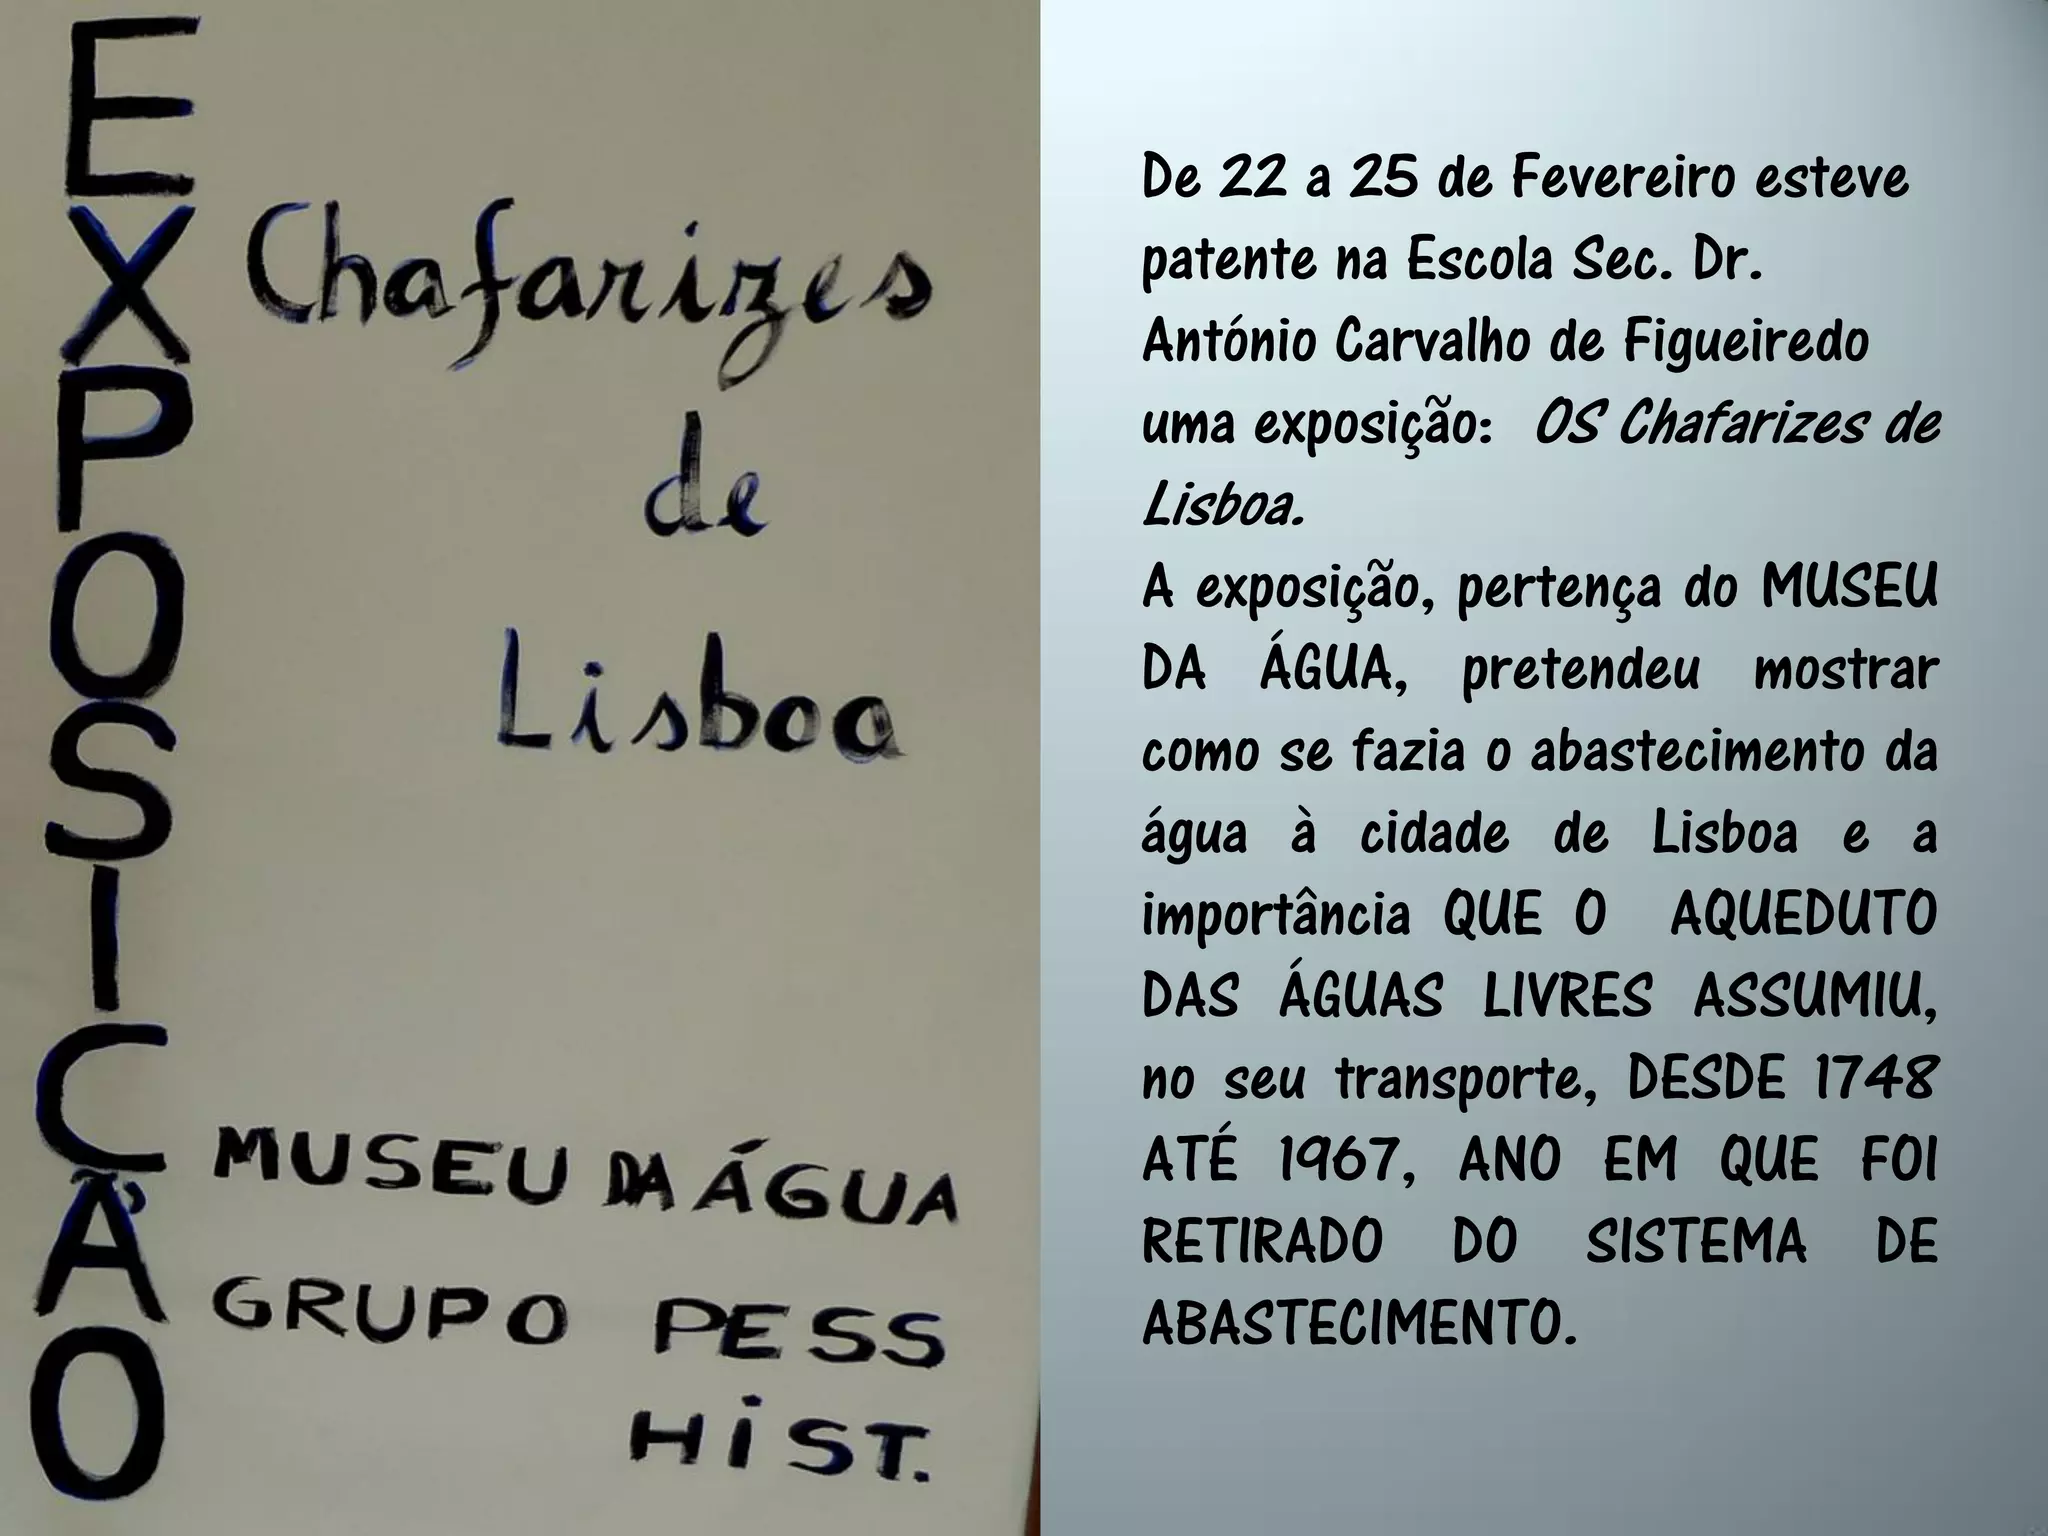 EXPOSIÇÃO
Chafarizes
de
Lisboa
MUSEU DA ÁGUA
GRUPO PESS
HIST.
De 22 a 25 de Fevereiro esteve
patente na Escola Sec. Dr.
António Carvalho de Figueiredo
uma exposição: OS Chafarizes de
Lisboa.
A exposição, pertença do MUSEU
DA ÁGUA, pretendeu mostrar
como se fazia o abastecimento da
água à cidade de Lisboa e a
importância QUE O AQUEDUTO
DAS ÁGUAS LIVRES ASSUMIU,
no seu transporte, DESDE 1748
ATÉ 1967, ANO EM QUE FOI
RETIRADO DO SISTEMA DE
ABASTECIMENTO.